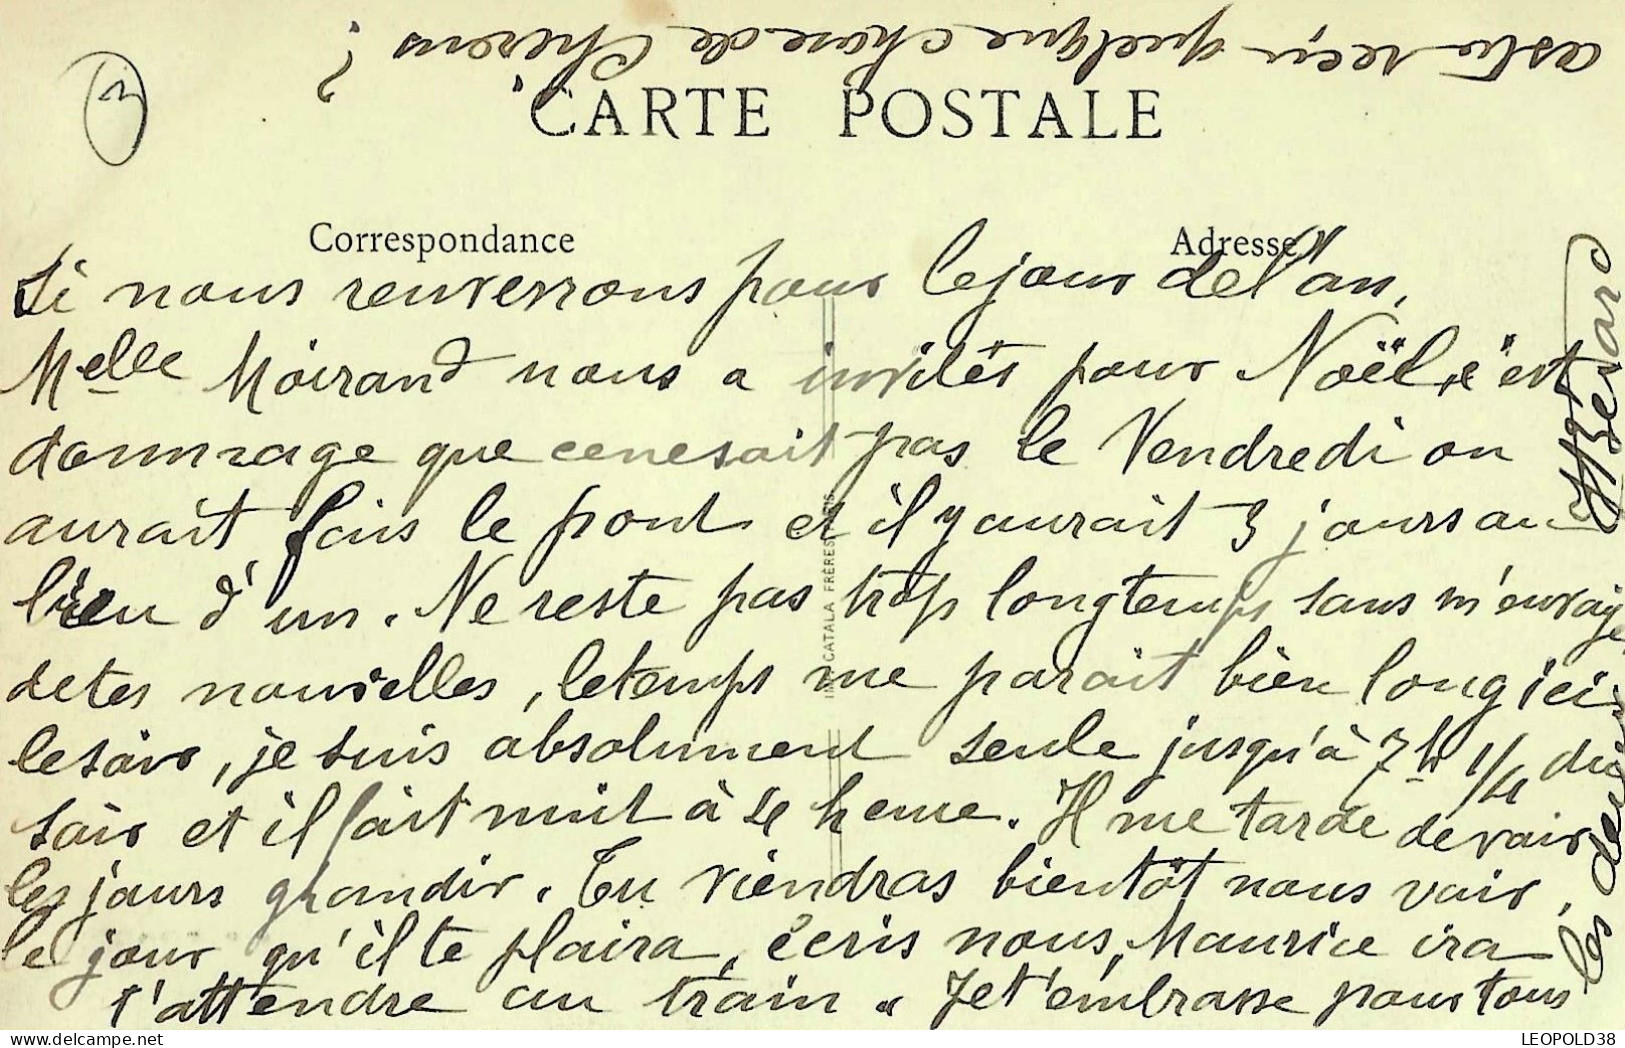 as tu reçu quelque chose de Chirens ?
3
CARTE POSTALE
Correspondance
Adresse
Si nous reuverrons pour le jour de l'an,
Melle Moirand nous a invités pour Noël, c'est
dommage que ce ne sait pas le Vendredi on
aurait fais le pont et il y aurait 3 jours au
lieu d'un. Ne reste pas trop longtemps sans m'envoye
de tes nouvelles, le temps me parait bien long ici
le soir, je suis absolument seule jusqu'à 7h 1/4 du
soir et il fait nuit à 4 heure. Il me tarde de voir
les jours grandir. Tu viendras bientôt nous voir,
le jour qu'il te plaira, écris nous, Maurice ira
t'attendre au train. Je t'embrasse pour tous
les deux
Besard
IMP. CATALA FRÈRES, PARIS
LEOPOLD38